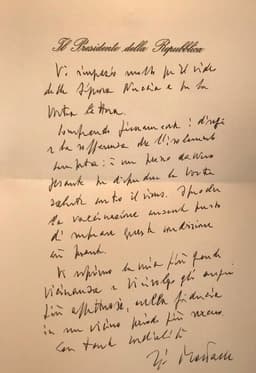 Il Presidente della Repubblica
Vi ringrazio molto per il video
della Signora Nunzia e per la
Vostra lettera.
Comprendo pienamente i disagi
e la sofferenza dell'isolamento
è un peso davvero
pesante
salute contro il virus. Spero che
la vaccinazione consenta presto
di superare questa condizione

Vi esprimo la mia più grande
vicinanza e Vi rivolgo gli auguri
più affettuosi, nella fiducia
in un vicino periodo più sereno.
Con tanta cordialità